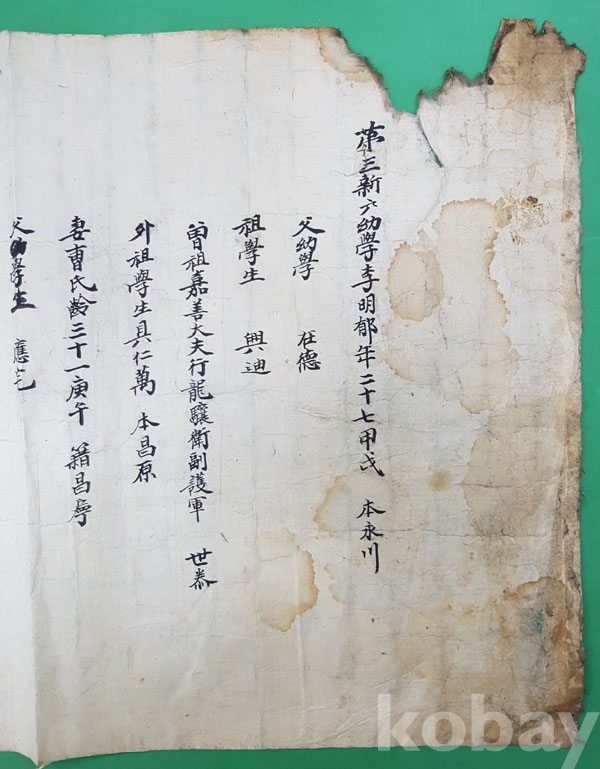 第三新六幼學李明郁年二十七甲戌 本永川
父幼學 在德
祖學生 興迪
曾祖嘉善大夫行龍驤衛副護軍 世泰
外祖學生具仁萬 本昌原
妻曺氏齡三十一庚午 籍昌寧
父學生 應
kobay